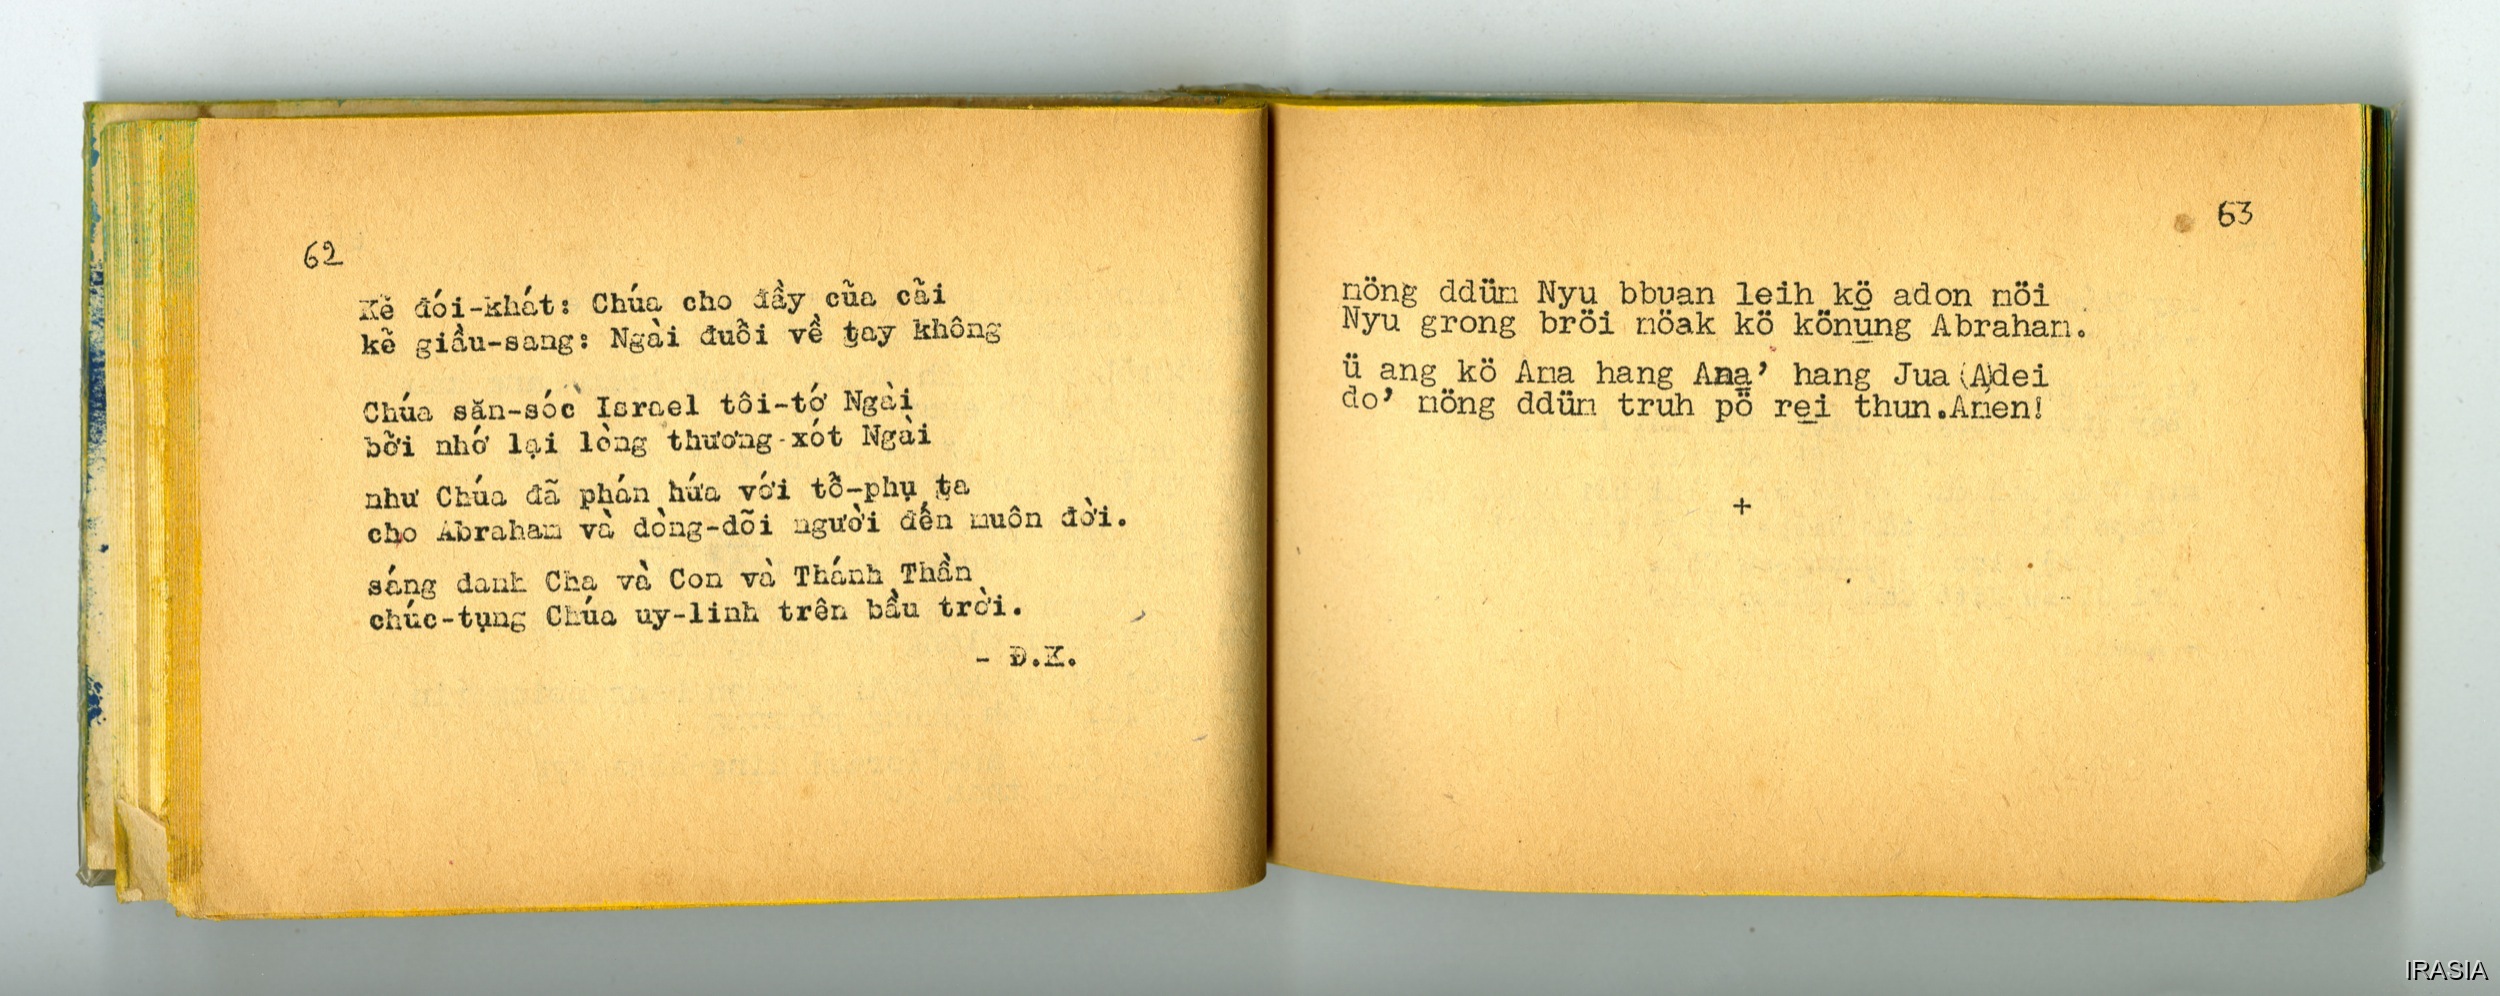 62
Kẻ đói-khát: Chúa cho đầy của cải
kẻ giầu-sang: Ngài đuổi về tay không
Chúa săn-sóc Israel tôi-tớ Ngài
bởi nhớ lại lòng thương-xót Ngài
như Chúa đã phán hứa với tổ-phụ ta
cho Abraham và dòng-dõi người đến muôn đời.
sáng danh Cha và Con và Thánh Thần
chúc-tụng Chúa uy-linh trên bầu trời.
- Đ.K.
63
nöng ddüm Nyu bbuan leih kö̱ adon möi
Nyu grong bröi möak kö könu̱ng Abraham.
ü ang kö Ama hang Ana̱' hang Jua (A)dei
do' nöng ddüm truh pö̱ re̱i thun.Amen!
+
IRASIA